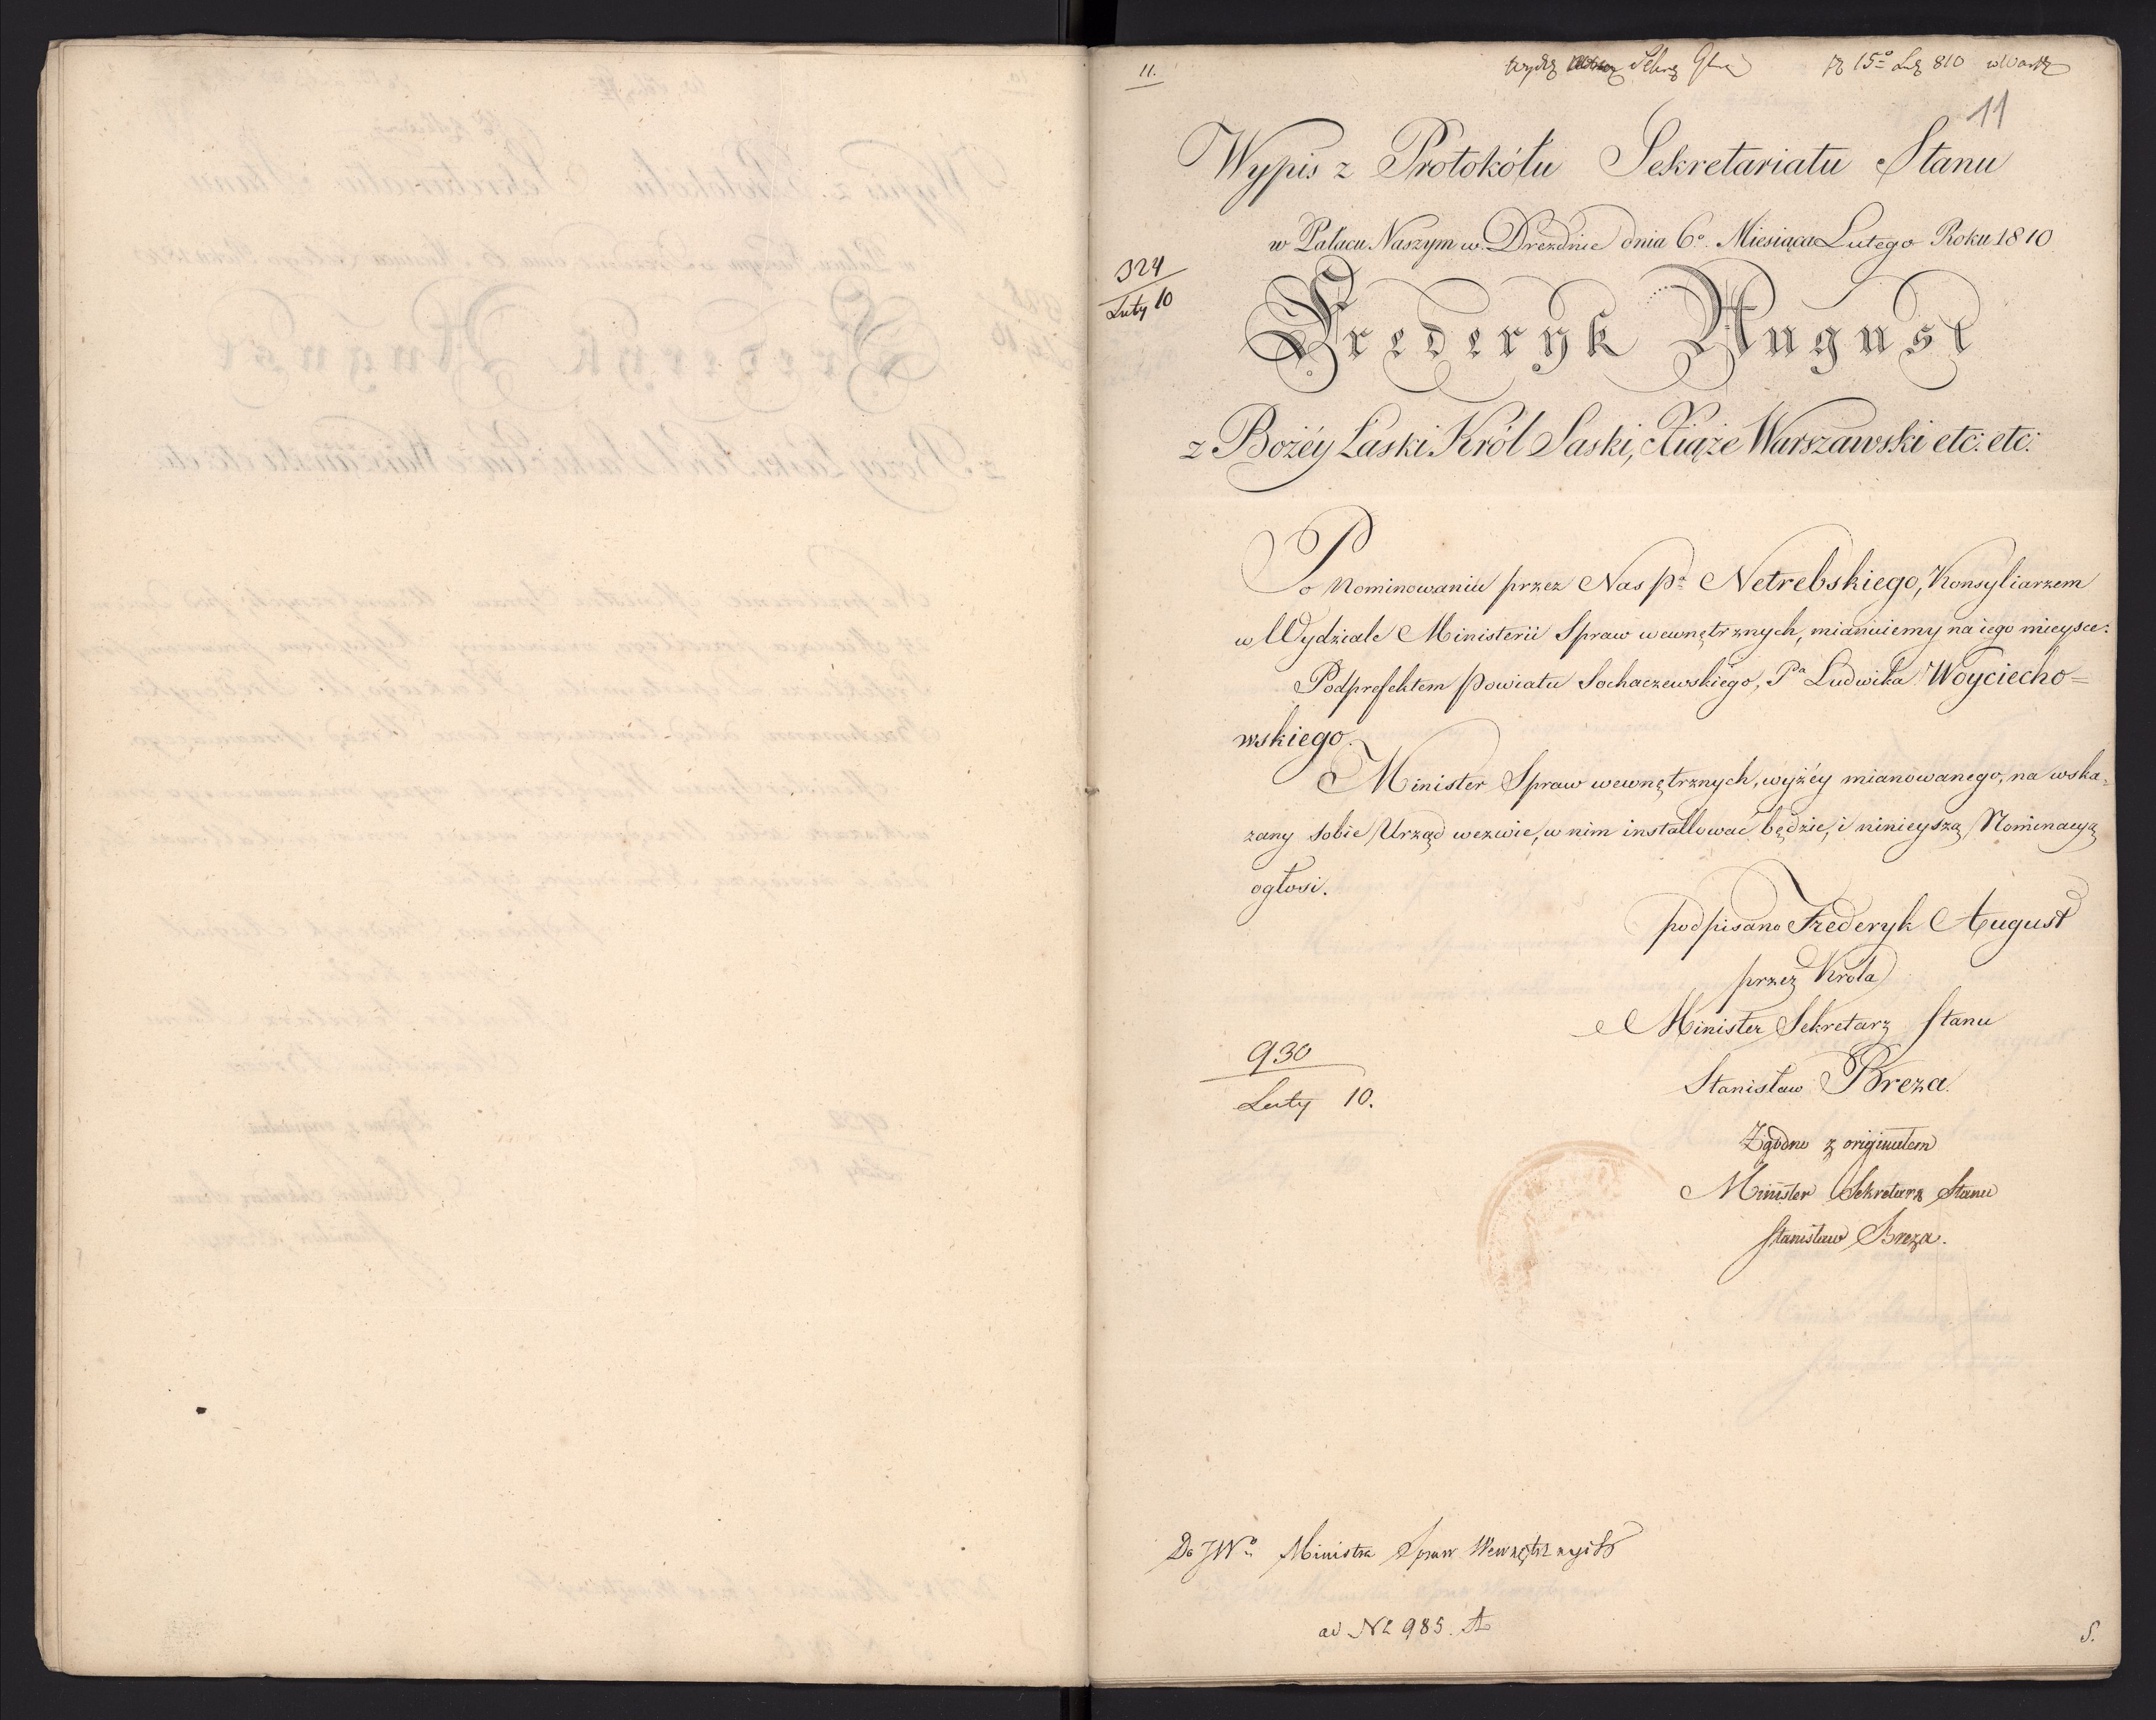 11.
Sekrę Glną 15º Lut 810
11
Wypis z Protokółu Sekretariatu Stanu
w Pałacu Naszym w Dreźdnie dnia 6º. Miesiąca Lutego Roku 1810
324
Luty 10
Frederyk August
z Bożéy Łaski Król Saski, Xiąże Warszawski etc: etc:
Po Nominowaniu przez Nas Pa Netrebskiego, Konsyliarzem
w Wydziale Ministerii Spraw wewnętrznych, mianuiemy na iego mieysce:
Podprefektem Powiatu Sochaczewskiego, Pa Ludwika Woyciecho=
wskiego.
Minister Spraw wewnętrznych, wyżéy mianowanego, na wska=
zany sobie Urząd wezwie, w nim installować będzie, i ninieyszą Nominacyą
ogłosi.
podpisano Frederyk August
przez Króla
Minister Sekretarz Stanu
930
Luty 10.
Stanisław Breza.
Zgodno z originałem
Minister Sekretarz Stanu
Stanisław Breza.
Do JWo Ministra Spraw Wewnętrznych
ad No 985. A
S.